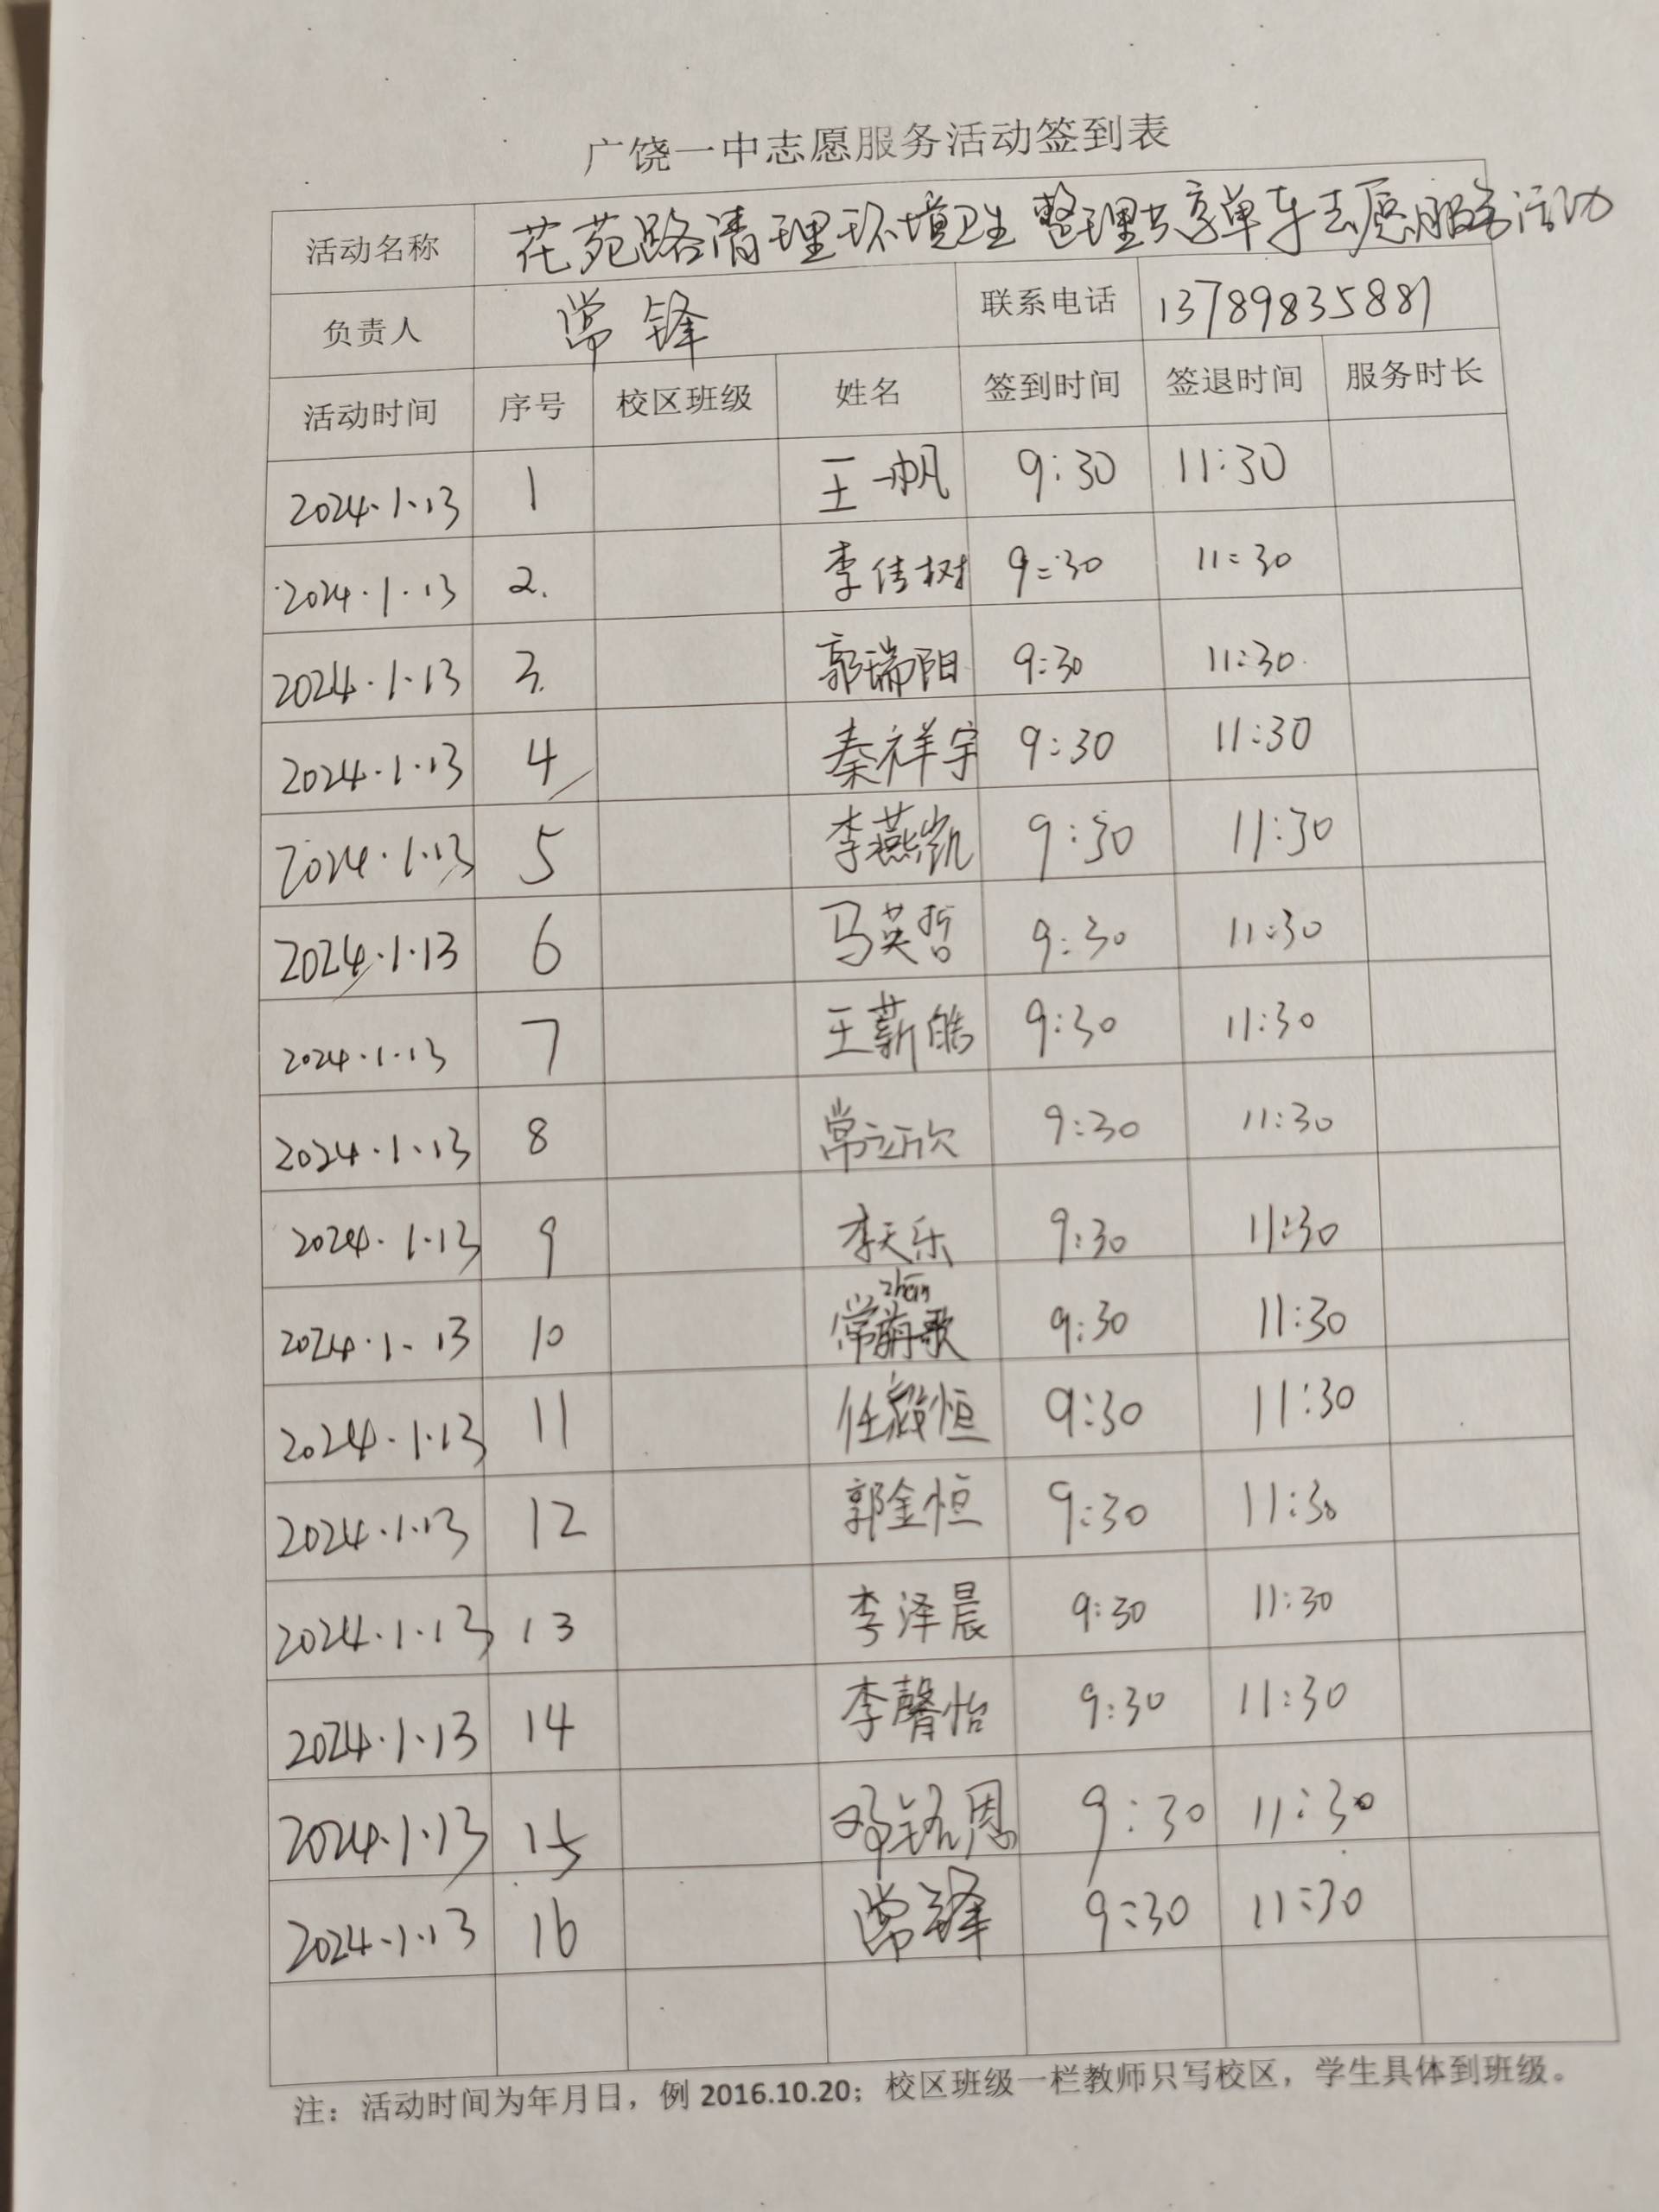 广饶一中志愿服务活动签到表
活动名称 花苑路清理环境卫生 整理共享单车志愿服务活动
负责人 常锋 联系电话 13789835881
活动时间 序号 校区班级 姓名 签到时间 签退时间 服务时长
2024.1.13 1 王一帆 9:30 11:30
2024.1.13 2. 李佳树 9:30 11:30
2024.1.13 3. 郭瑞阳 9:30 11:30
2024.1.13 4 秦祥宇 9:30 11:30
2024.1.13 5 李燕凯 9:30 11:30
2024.1.13 6 马英哲 9:30 11:30
2024.1.13 7 王薪皓 9:30 11:30
2024.1.13 8 常立欣 9:30 11:30
2024.1.13 9 李天乐 9:30 11:30
2024.1.13 10 9:30 11:30
2024.1.13 11 任毅恒 9:30 11:30
2024.1.13 12 郭金恒 9:30 11:30
2024.1.13 13 李泽晨 9:30 11:30
2024.1.13 14 李馨怡 9:30 11:30
2024.1.13 15 邓铭恩 9:30 11:30
2024.1.13 16 常锋 9:30 11:30
注：活动时间为年月日，例 2016.10.20；校区班级一栏教师只写校区，学生具体到班级。